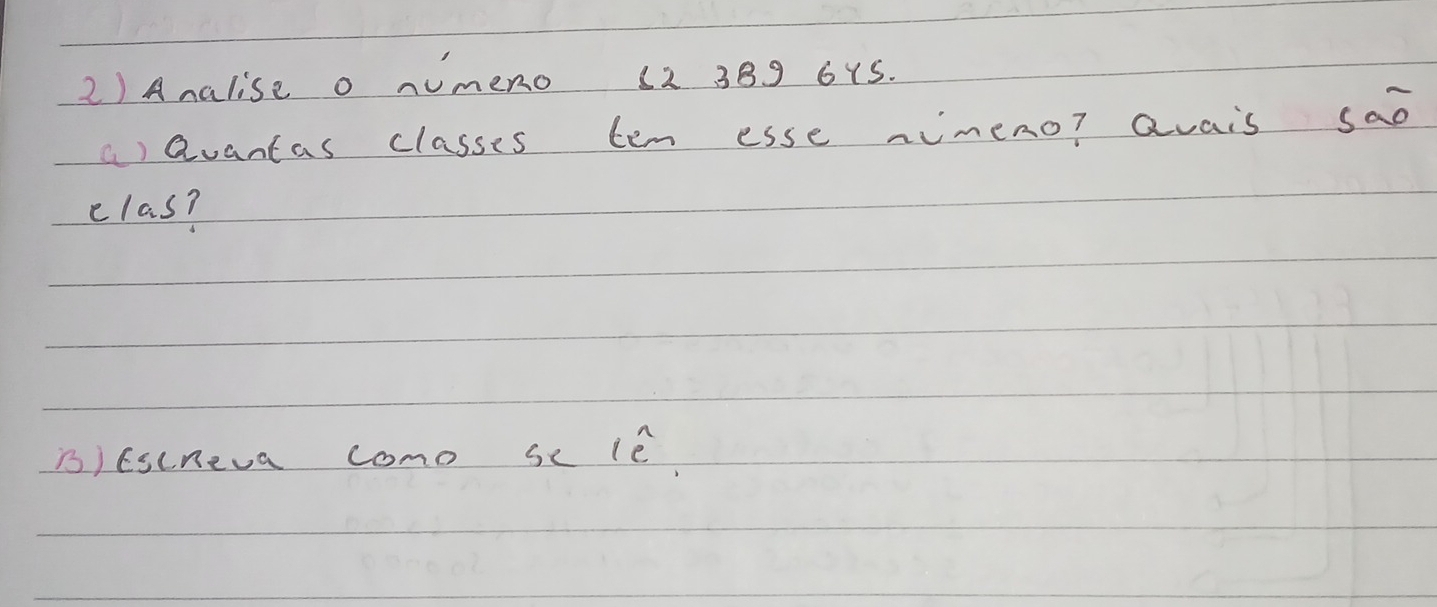 2) Analise o número 12 389 645.
a) Quantas classes tem esse número? Quais são
elas?
B) Escreva como se lê.